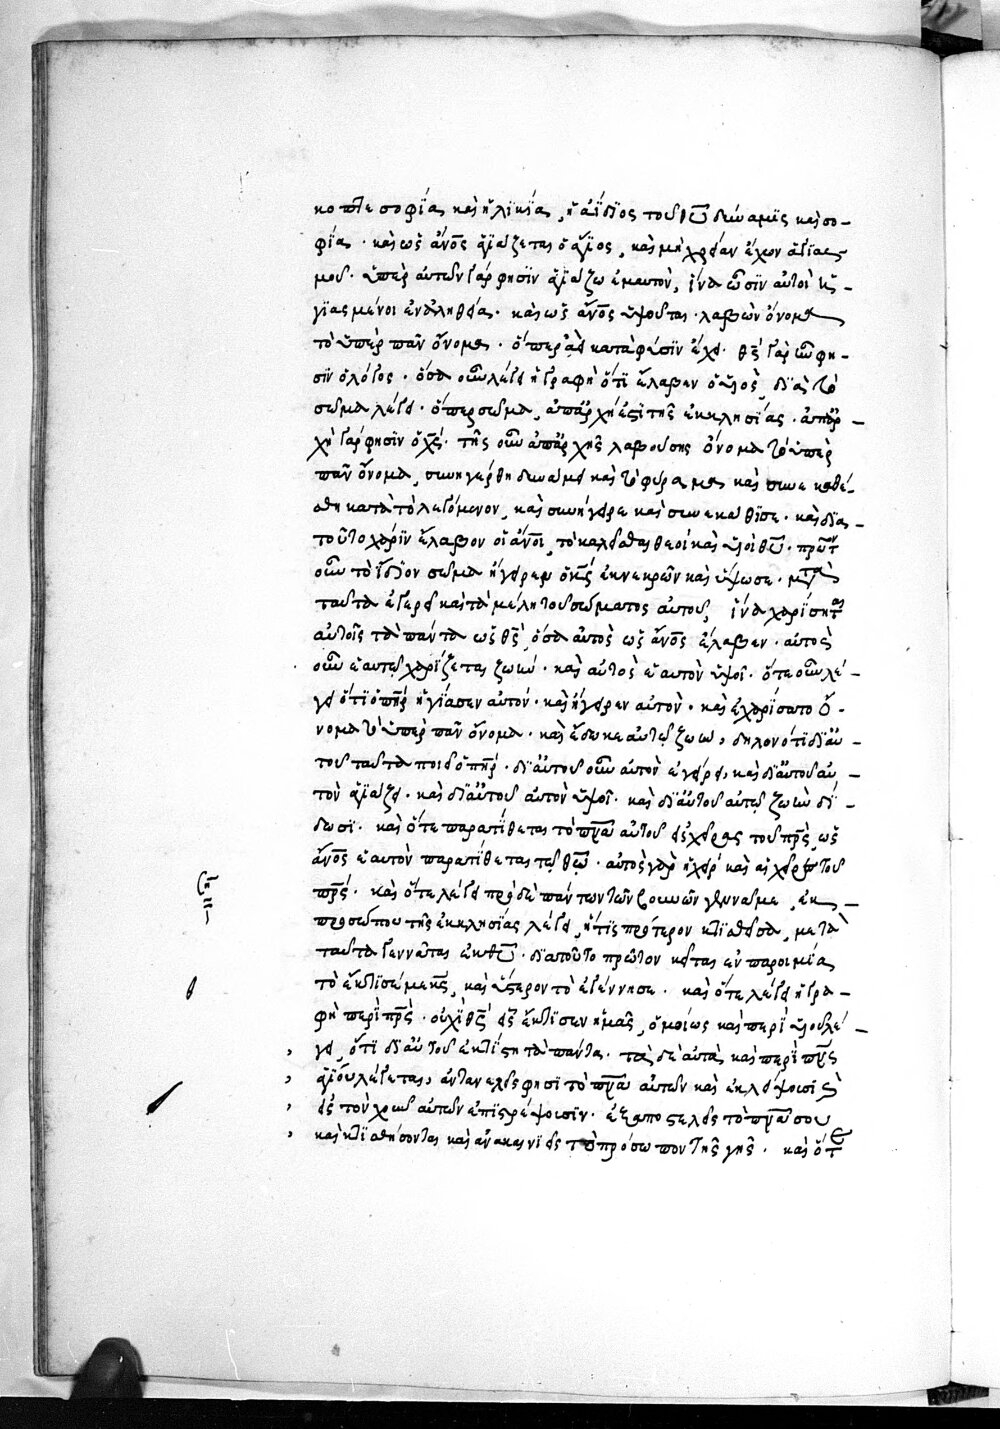 κοπτε σοφία καὶ ἡλικία, ἡ ἀΐδιος τοῦ θῡ δύναμις καὶ σο-
φία. καὶ ὡς ἄνος ἁγιάζεται ὁ ἅγιος, καὶ μὴ χρείαν ἔχων ἁγιας
μοῦ. ὑπὲρ αὐτῶν γάρ φησιν ἁγιάζω ἐμαυτὸν, ἵνα ὦσιν αὐτοὶ ἡ-
γιασμένοι ἐν ἀληθεία. καὶ ὡς ἄνος ὑψοῦται. λαβὼν ὄνομα
τὸ ὑπὲρ πᾶν ὄνομα. ὅπερ ἀεὶ κατὰ φύσιν ἔχει. θς γὰρ ἦν φη-
σὶν ὁ λόγος. ὅσα οὖν λέγει ἡ γραφὴ ὅτι ἔλαβεν ὁ υἱὸς, διὰ τὸ
σῶμα λέγει. ὅπερ σῶμα, ἀπαρχή ἐστι τῆς ἐκκλησίας. ἀπαρ-
χὴ γάρ φησιν ὁ χς. τῆς οὖν ἀπαρχῆς λαβούσης ὄνομα τὸ ὑπὲρ
πᾶν ὄνομα, συνηγέρθη δυνάμει καὶ τὸ φύραμα καὶ συνεκαθέ-
σθη κατὰ τὸ λεγόμενον, καὶ συνήγειρε καὶ συνεκάθισε. καὶ διὰ
τοῦτο χάριν ἔλαβον οἱ ἄνοι, τὸ καλεῖσθαι θεοὶ καὶ υἱοὶ θῡ. πρῶτον
οὖν τὸ ἴδιον σῶμα ἤγειρεν ὁ κς ἐκ νεκρῶν καὶ ὕψωσε. μετὰ
ταῦτα ἐγείρει καὶ τὰ μέλη τοῦ σώματος αὐτοῦ, ἵνα χαρίσηται
αὐτοῖς τὰ πάντα ὡς θς, ὅσα αὐτὸς ὡς ἄνος ἔλαβεν. αὐτὸς
οὖν ἑαυτῷ χαρίζεται ζωὴν. καὶ αὐτὸς ἑαυτὸν ὑψοῖ. ὅτε οὖν λέ-
γει ὅτι ὁ πηρ ἡγίασεν αὐτόν. καὶ ἤγειρεν αὐτὸν. καὶ ἐχαρίσατο ὄ-
νομα τὸ ὑπὲρ πᾶν ὄνομα. καὶ ἔδωκε αὐτῷ ζωὴν, δῆλον ὅτι δι' αὐ-
τοῦ ταῦτα ποιεῖ ὁ πηρ. δι' αὐτοῦ οὖν αὐτὸν ἐγείρει, καὶ δι' αὐτοῦ αὐ-
τὸν ἁγιάζει. καὶ δι' αὐτοῦ αὐτὸν ὑψοῖ. καὶ δι' αὐτοῦ αὐτῷ ζωὴν δί-
δωσι. καὶ ὅτε παρατίθεται τὸ πνα αὐτοῦ εἰς χεῖρας τοῦ πρς, ὡς
ἄνος ἑαυτὸν παρατίθεται τῷ θω. αὐτὸς γὰρ ἡ χεὶρ καὶ αἱ χεῖρες τοῦ
πρς. καὶ ὅτε λέγει πρὸ δὲ πάντων τῶν βουνῶν γεννᾷ με, ἐκ
προσώπου τῆς ἐκκλησίας λέγει, ἥτις πρότερον κτισθεῖσα, μετὰ
ταῦτα γεννᾶται ἐκ θῡ. διὰ τοῦτο πρῶτον κεῖται ἐν παροιμία
τὸ ἔκτισέ με κς, καὶ ὕστερον τὸ ἐγέννησε. καὶ ὅτε λέγει ἡ γρα-
φὴ περὶ πρς. οὐχὶ θς εἷς ἔκτισεν ἡμᾶς, ὁμοίως καὶ περὶ υἱοῦ λέ-
γει, ὅτι δι' αὐτοῦ ἐκτίσθη τὰ πάντα. τὰ δὲ αὐτὰ καὶ περὶ πνς
ἁγίου λέγεται, ἀντανελεῖς φησι τὸ πνα αὐτῶν καὶ ἐκλείψουσι
εἰς τὸν χοῦν αὐτῶν ἐπιστρέψουσιν. ἐξαποστελεῖς τὸ πνα σου
καὶ κτισθήσονται καὶ ἀνακαινιεῖς τὸ πρόσωπον τῆς γῆς. καὶ ὅτε